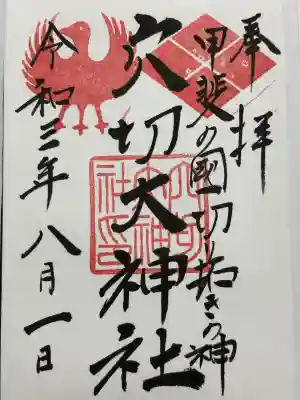 奉拝
甲斐の國切り拓きの神
穴切大神社
令和三年八月一日